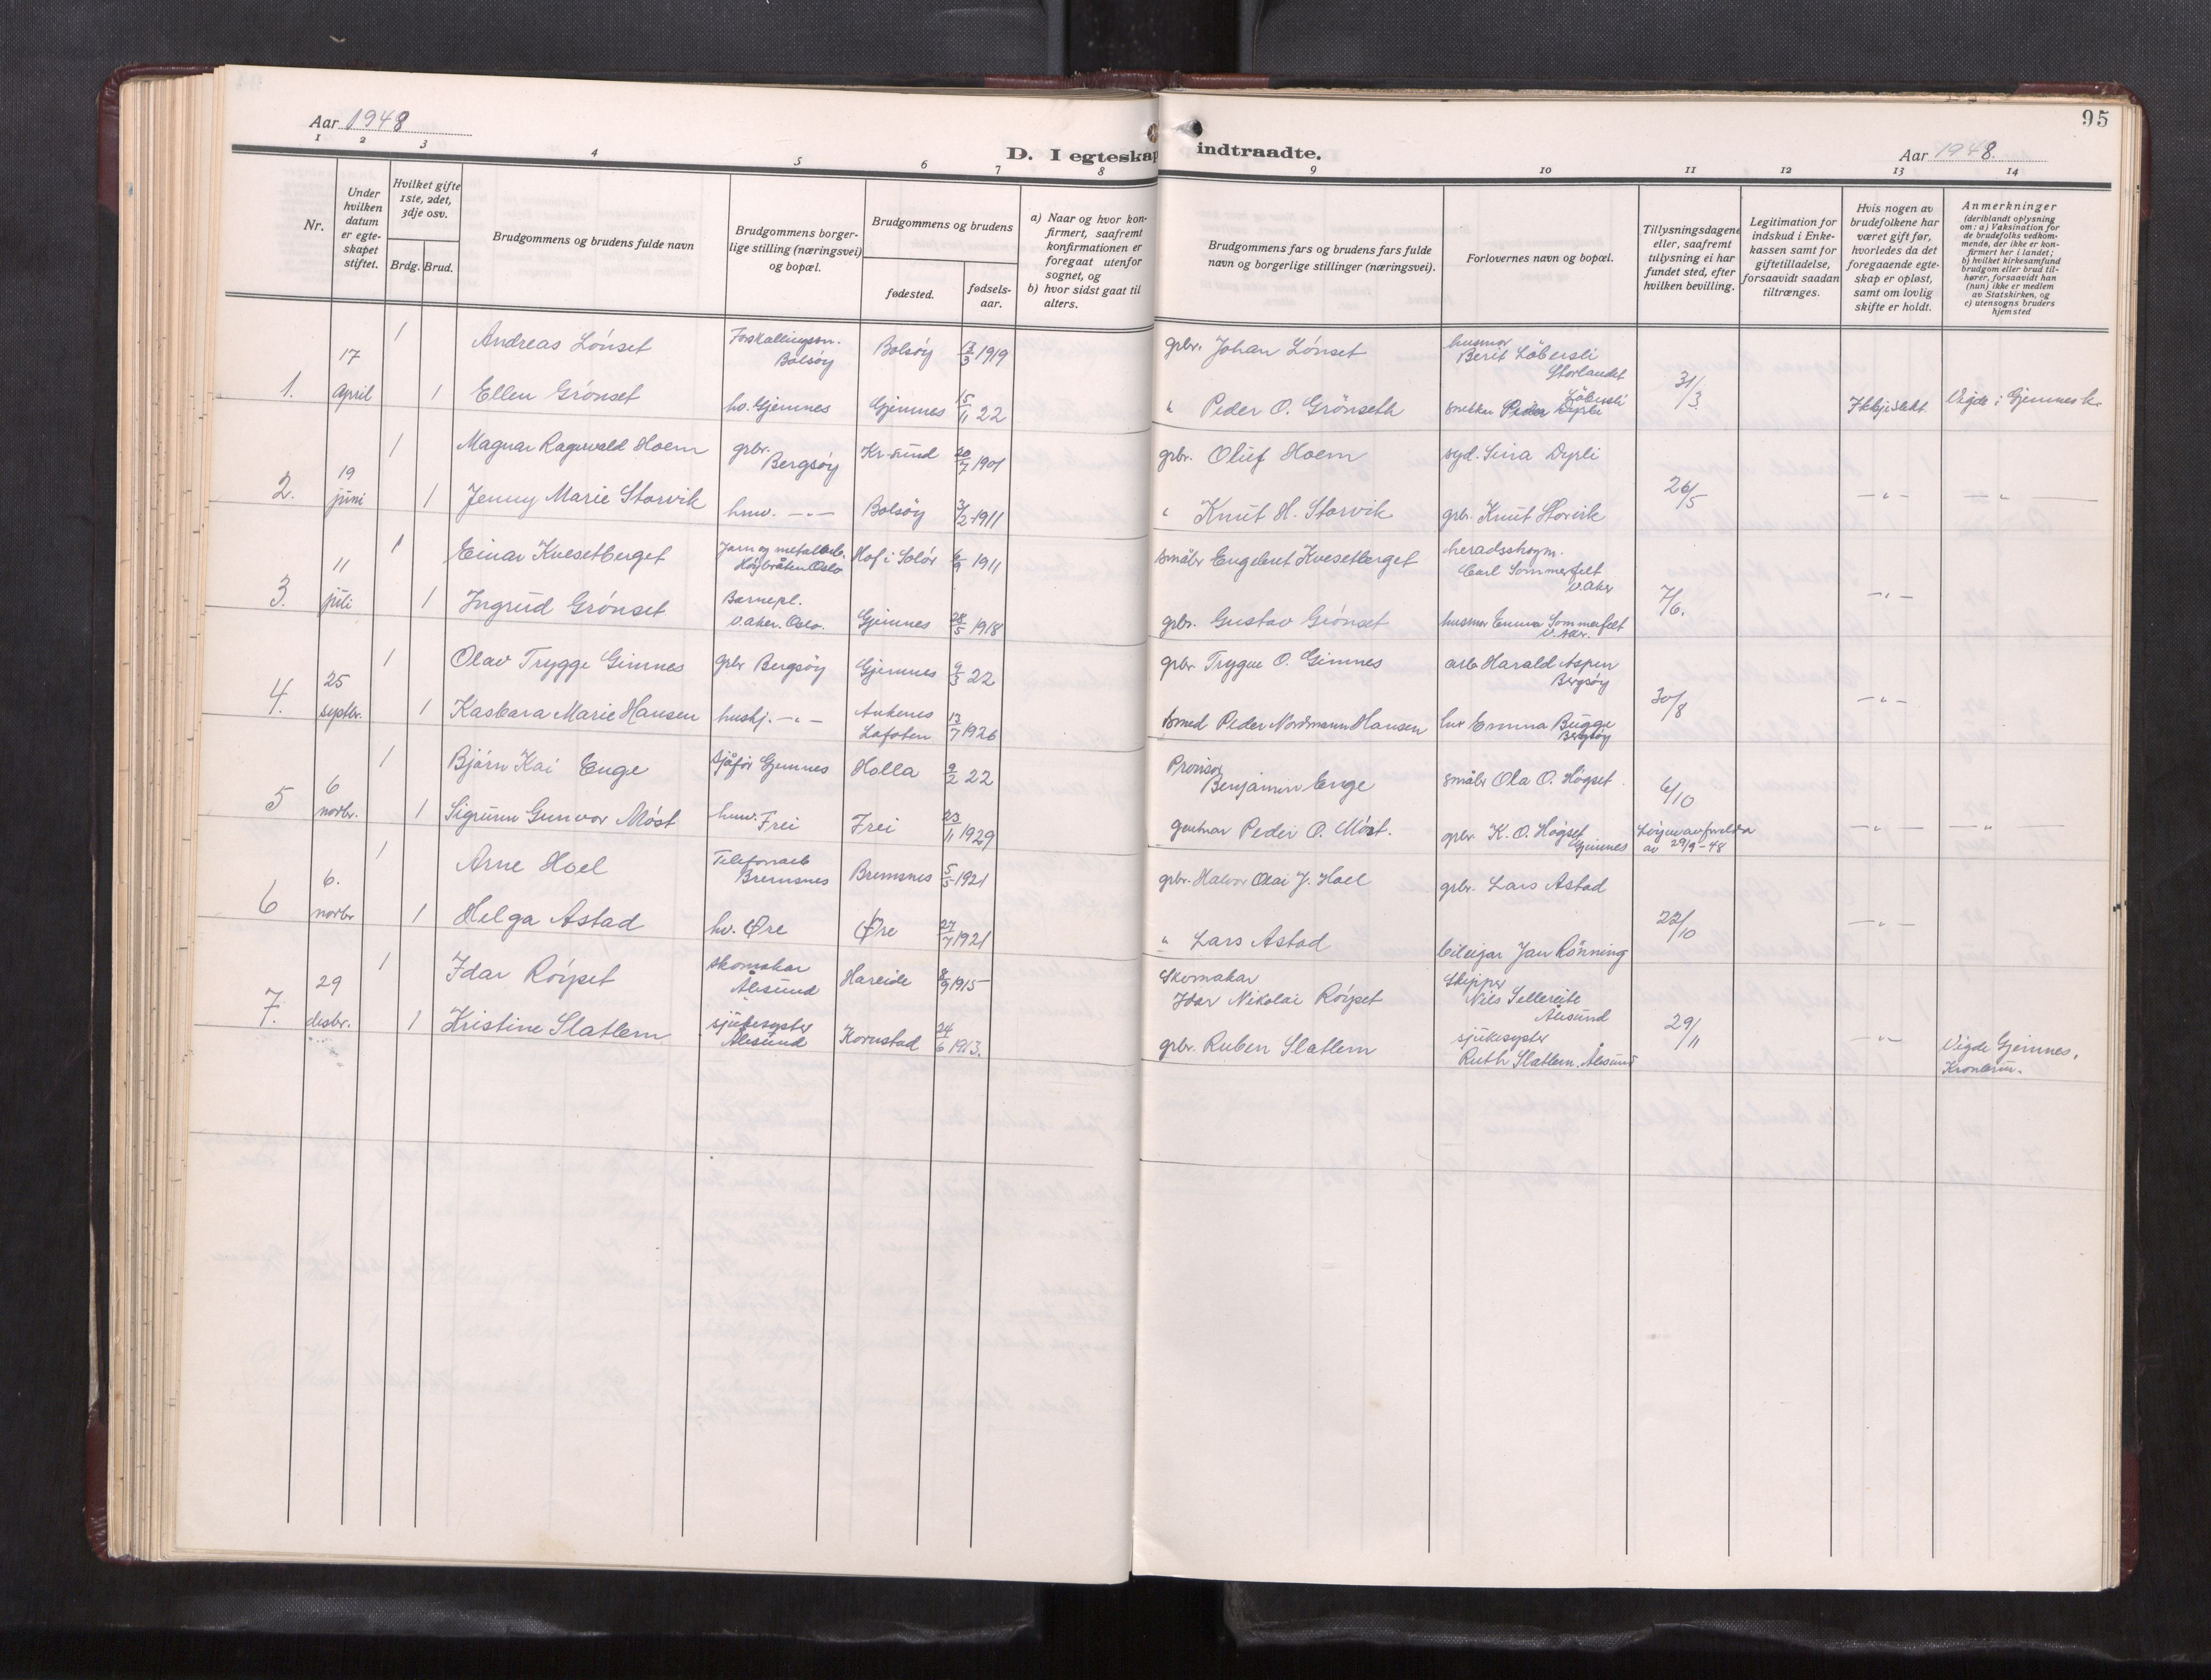 95
Aar 1948
D. I egteskap indtraadte.
Aar 1948.
1 2 3 4 5 6 7 8 9 10 11 12 13 14
Nr.
Under hvilken datum er egte-skapet stiftet.
Hvilket gifte 1ste, 2det, 3dje osv.
Brdg. Brud.
Brudgommens og brudens fulde navn
Brudgommens borger-lige stilling (næringsvei) og bopæl.
Brudgommens og brudens
fødested.
fødsels-aar.
a) Naar og hvor kon-firmert, saafremt konfirmationen er foregaat utenfor sognet, og
b) hvor sidst gaat til alters.
Brudgommens fars og brudens fars fulde navn og borgerlige stillinger (næringsvei).
Forlovernes navn og bopæl.
Tillysningsdagene eller, saafremt tillysning ei har fundet sted, efter hvilken bevilling.
Legitimation for indskud i Enke-kassen samt for giftetilladelse, forsaavidt saadan tiltrænges.
Hvis nogen av brudefolkene har været gift før, hvorledes da det foregaaende egte-skap er opløst, samt om lovlig skifte er holdt.
Anmerkninger (deriblandt oplysning om: a) Vaksination for de brudefolks vedkom-mende, der ikke er kon-firmert her i landet; b) hvilket kirkesamfund brudgom eller brud til-hører, forsaavidt han (nun) ikke er medlem av Statskirken, og c) utensogns bruders hjemsted
1 Andreas Lönset Bolsöy Bolsöy 13/3 1919 grbr. Johan Lönset husmor Berit Löbersli Storlandet
1. 17 april 1 Ellen Grönset hv. Gjemnes Gjemnes 15/11 22 " Peder O. Grönseth snekker Peder Löbersli 31/3 Ikkje slekt Vigde i Gjemnes k.
1 Magnar Ragnvald Hoem grbr. Bergsöy Kr.sund 20/7 1901 grbr. Oluf Hoem syd. Sina Dyrli
2. 19 juni 1 Jenny Marie Storvik hmv. -"- Bolsöy 3/2 1911 " Knut H. Storvik grbr. Knut Storvik 26/5 -"- -"-
1 Einar Kvesetberget Jarn og metallarb. Höybråten Oslo Hof i Solör 6/9 1911 småbr Engebret Kvesetberget heradsskogm. Carl Sommerfelt V. Aker
3. 11 juli 1 Ingrid Grönset Barnepl. V. Aker. Oslo. Gjemnes 28/5 1918 grbr. Gustav Grönset husmor Emma Sommerfelt V. Akr. 7/6. -"-
1 Olav Trygge Gimnes grbr Bergsöy Gjemnes 9/3 22 grbr Trygve O. Gimnes arb Harald Aspen Bergsöy
4. 25 septbr. 1 Kasbara Marie Hansen hushj. -"- Ankenes Lofoten 13/7 1926 smed Peder Nordmann Hansen huv Emma Bugge Bergsöy 30/8 -"-
1 Björn Kai Enge sjåför Gjemnes Holla 9/2 22 Provisor Benjamin Enge småbr Ola O. Högset
5 6 novbr. 1 Sigrunn Gunvor Möst hmv. Frei Frei 23/11 1929 gartnar Peder O. Möst. grbr K. O. Högset Gjemnes 6/10 Löyve av foreldra av 29/9-48 -"- -"-
1 Arne Hoel Telefonarb Bremsnes Bremsnes 5/5 1921 grbr. Halvor Olai J. Hoel grbr. Lars Astad
6 6. novbr 1 Helga Astad hv. Øre Øre 27/7 1921 " Lars Astad bileigar Jan Rönning 22/10 -"-
1 Idar Röyset skomakar Ålesund Hareide 8/9 1915 Skomakar Idar Nikolai Röyset Skipper Nils Sellereite Ålesund
7. 29 desbr. 1 Kristine Slatlem sjukesyster Ålesund Kornstad 24/6 1913. grbr. Ruben Slatlem sjukesyster Ruth Slatlem, Ålesund 29/11 -"- Vigde Gjemnes, Kronbrur.